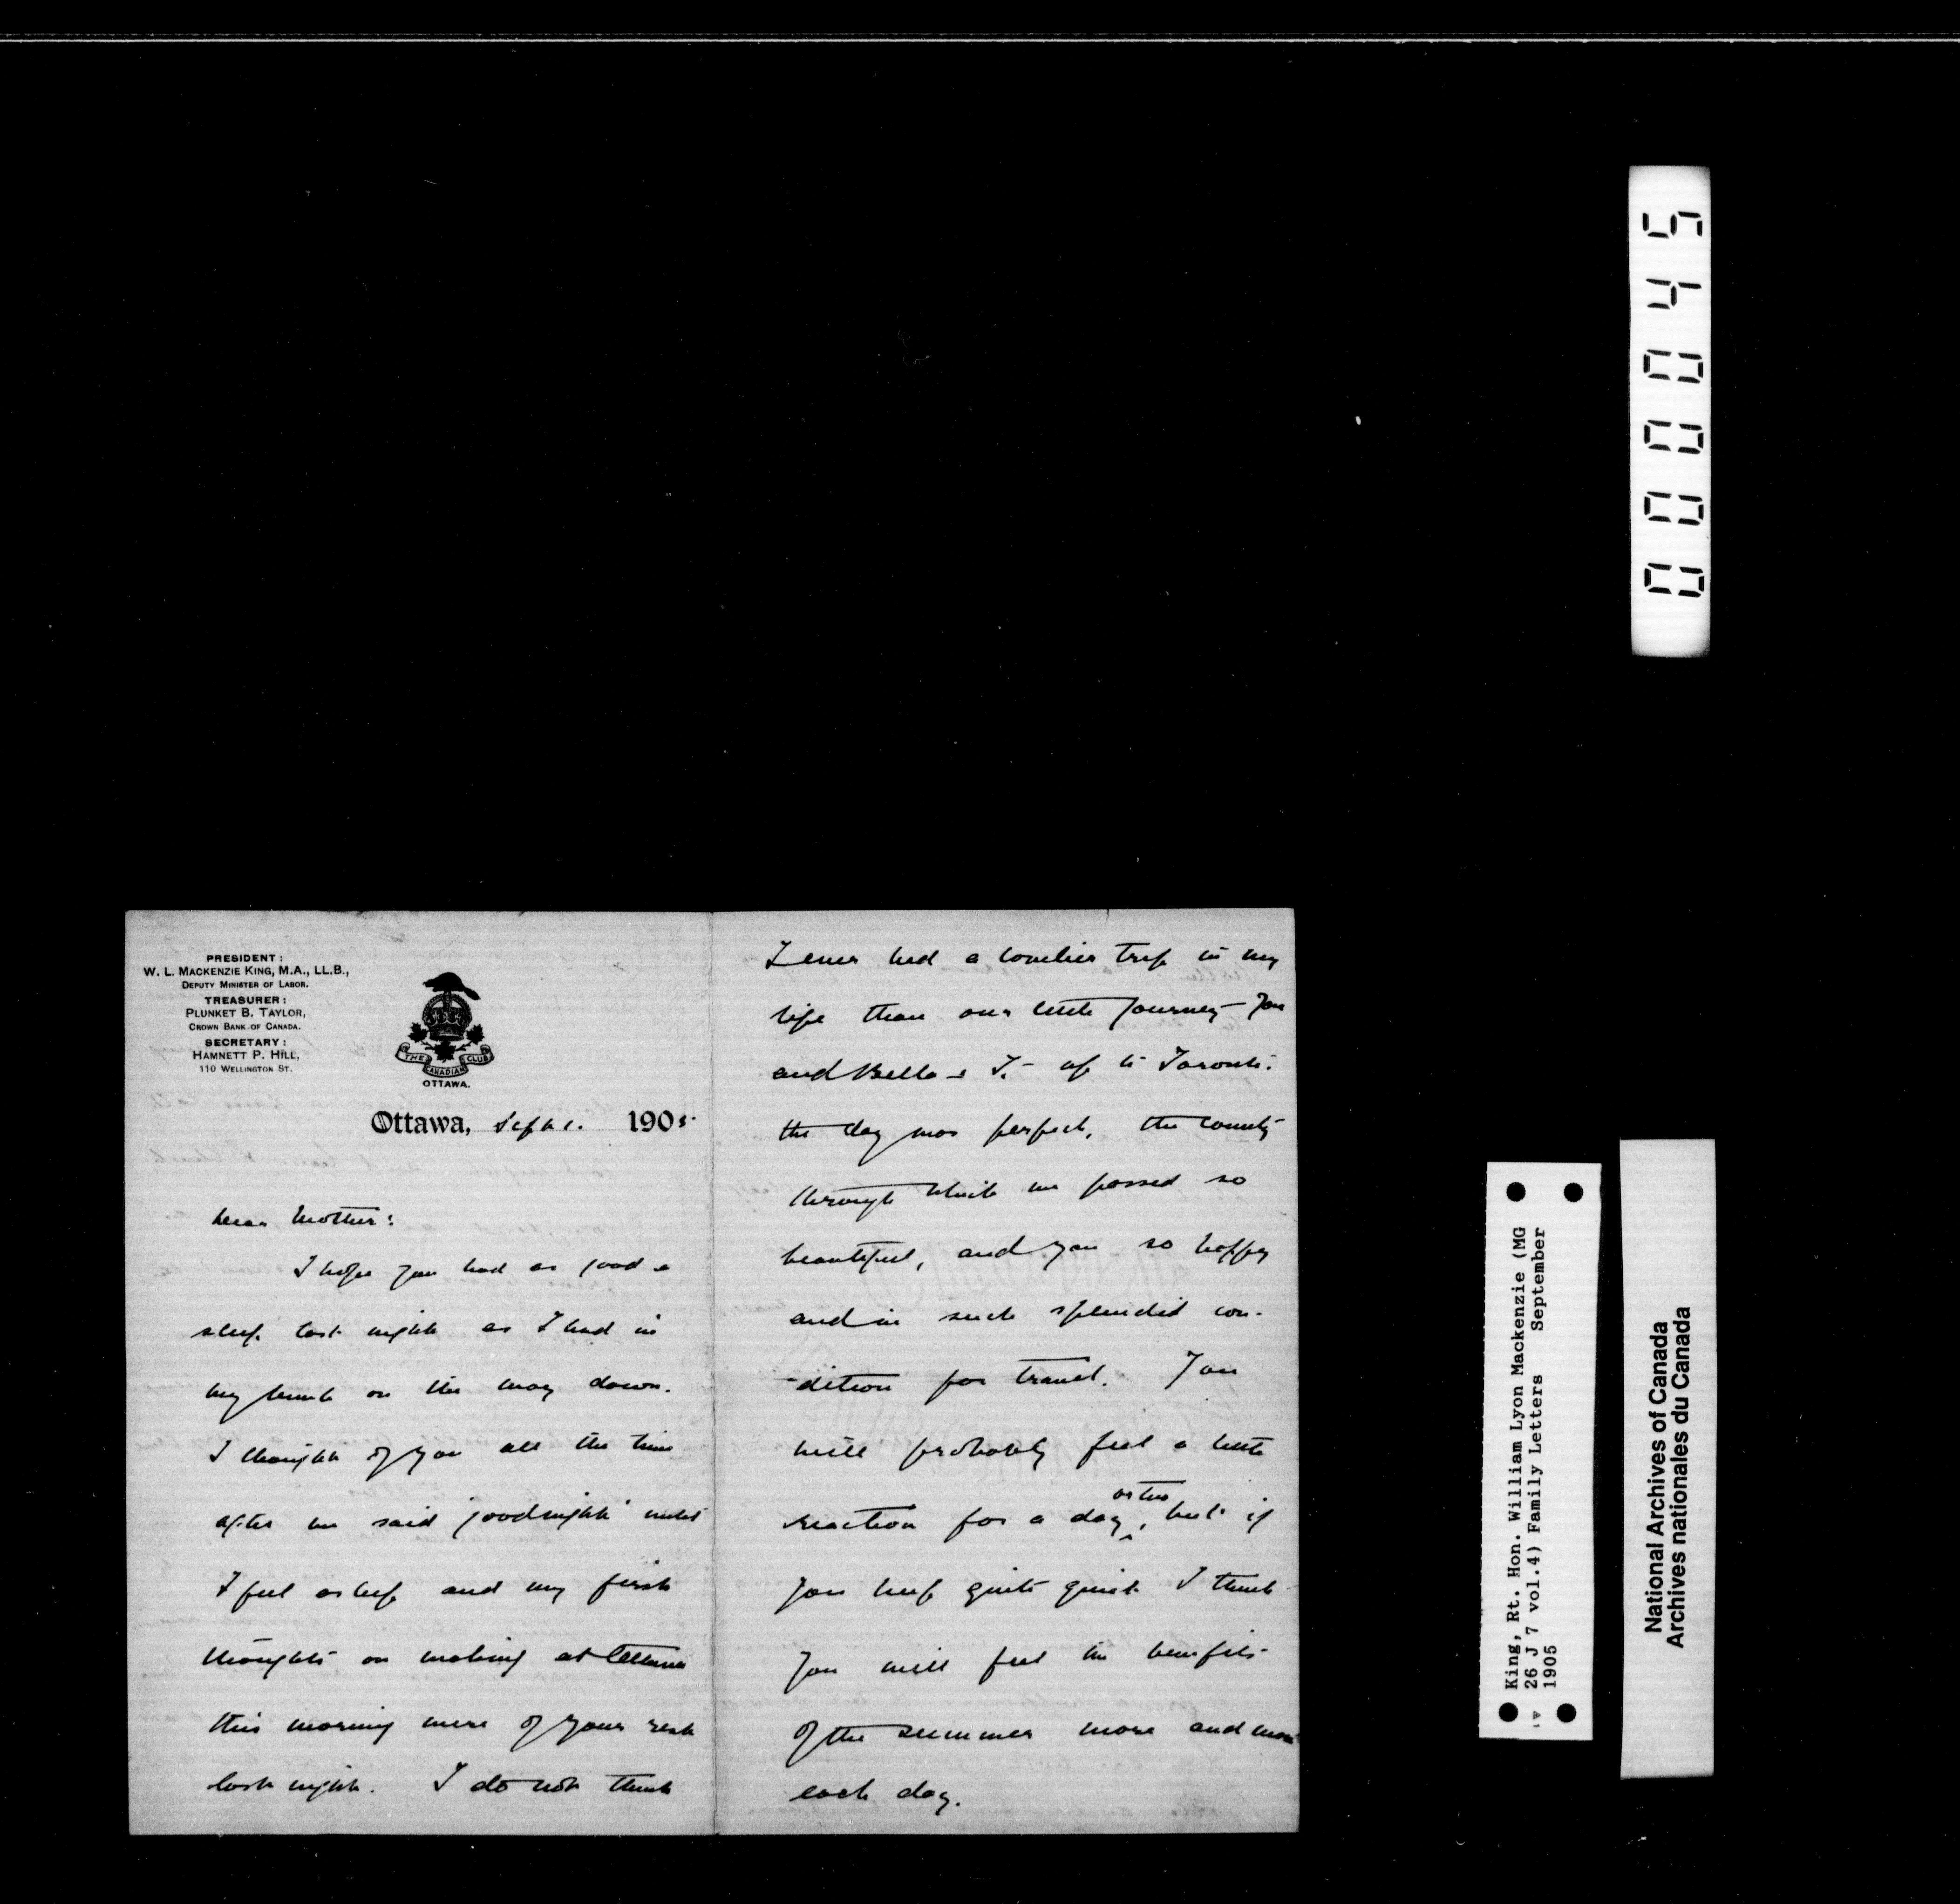 PRESIDENT:
W. L. MACKENZIE KING, M.A., LL.B.,
DEPUTY MINISTER OF LABOR.
TREASURER:
PLUNKET B. TAYLOR,
CROWN BANK OF CANADA.
SECRETARY:
HAMNETT P. HILL,
110 WELLINGTON ST.
THE CANADIAN CLUB
OTTAWA.
Ottawa, Sept 1. 1905.
Dear Mother:
I hope you had as good a
sleep last night as I had in
my bunk on the way down.
I thought of you all the time
after we said 'goodnight' until
I fell asleep and my first
thoughts on waking at Ottawa
this morning were of your rest
last night. I do not think
I ever had a lovelier trip in my
life than our little journey - you
and Bella & I. - up to Toronto.
the day was perfect, the country
through which we passed so
beautiful, and you so happy
and in such splendid con-
-dition for travel. You
will probably feel a little
reaction for a day or two, but if
you keep quite quiet I think
you will feel the benefits
of the summer more and more
each day.
000045
King, Rt. Hon. William Lyon Mackenzie (MG
26 J 7 vol.4) Family Letters September
1905
National Archives of Canada
Archives nationales du Canada